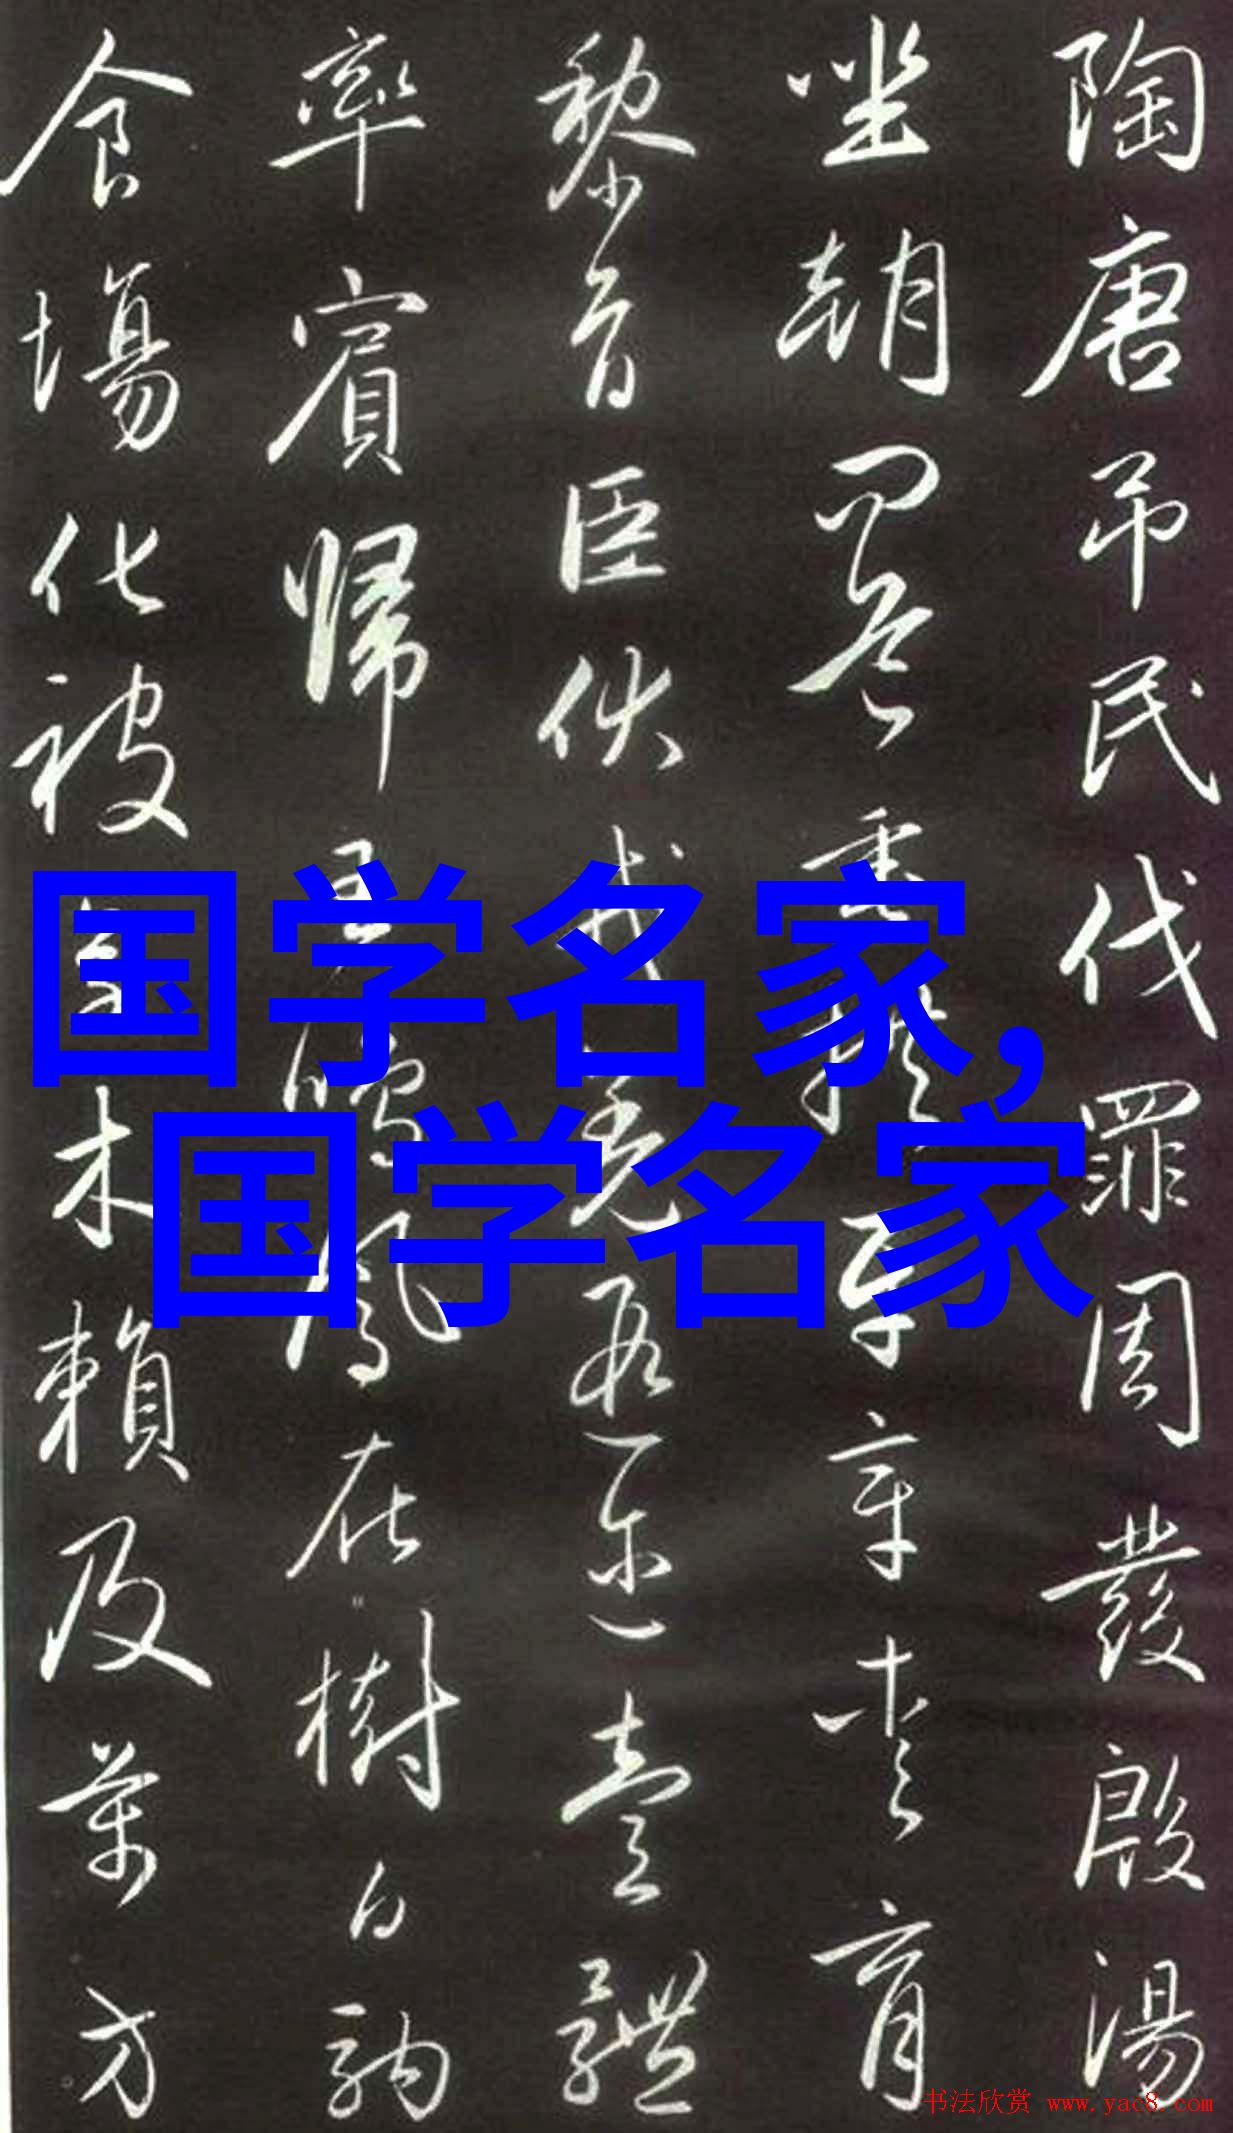 陶唐吊民伐罪周發殷湯
坐朝問道垂拱平章愛育
黎首臣伏戎羌遐迩壹體
率賓歸王鳴鳳在樹白駒
食場化被草木賴及萬方
国学名家，
国学名家
书法欣赏 www.yac8.com